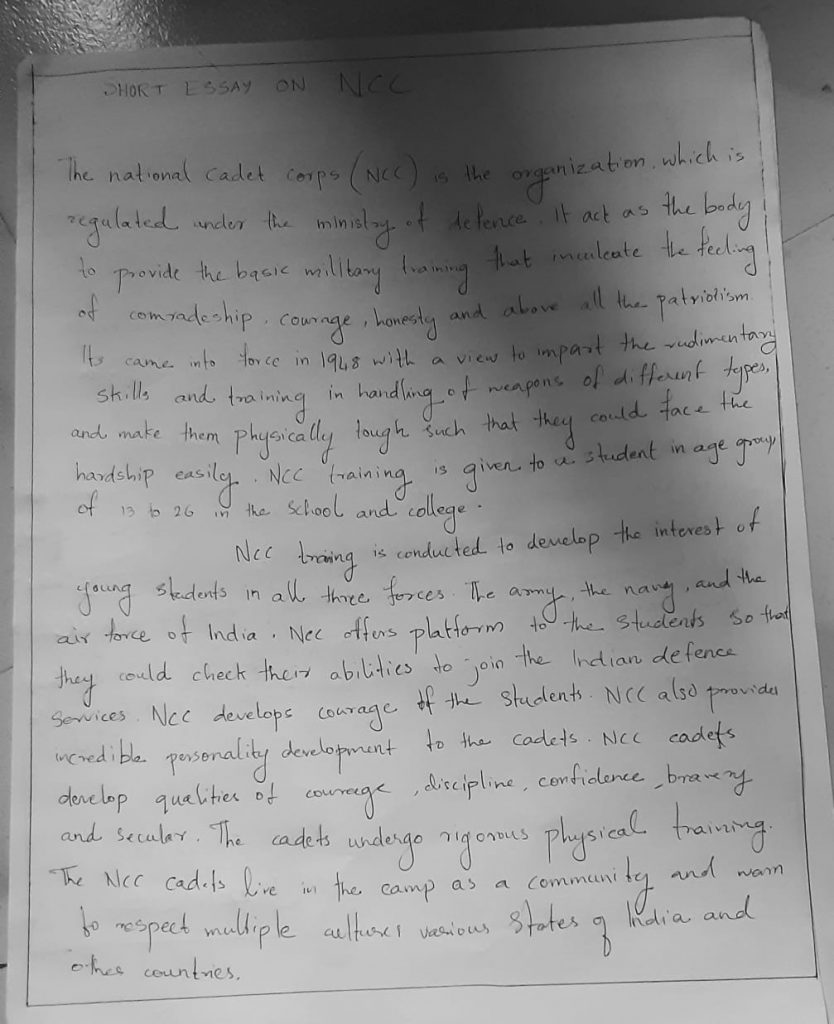 SHORT ESSAY ON NCC
The national Cadet Corps (NCC) is the organization. which is
regulated under the ministry of defence. It act as the body
to provide the basic military training that inculcate the feeling
of comradeship, courage, honesty and above all the patriotism.
Its came into force in 1948 with a view to impart the rudimentary
skills and training in handling of weapons of different types,
and make them physically tough such that they could face the
hardship easily. NCC training is given to a student in age group
of 13 to 26 in the School and college.
NCC traning is conducted to develop the interest of
young students in all three forces. The army, the navy, and the
air force of India. Ncc offers platform to the Students so that
they could check their abilities to join the Indian defence
Services. NCC develops courage of the Students. NCC also provides
incredible personality development to the cadets. NCC cadets
develop qualities of courage, discipline, confidence, bravery
and Secular. The cadets undergo rigorous physical training.
The NCC Cadets live in the camp as a community and
to respect multiple cultures various States of India and
other countries.